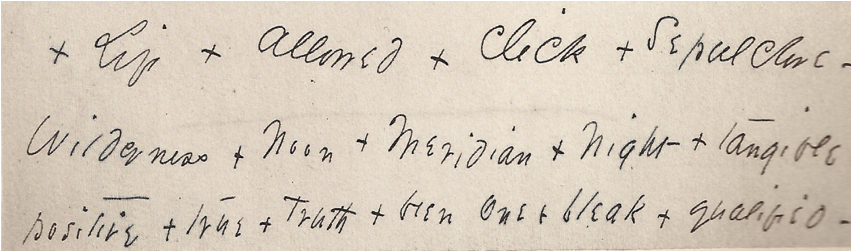 + Lip + allowed + Click + Sepulchre -
Wilderness + Noon + Meridian + Night + tangible
positive + true + Truth + been One + bleak + qualified -